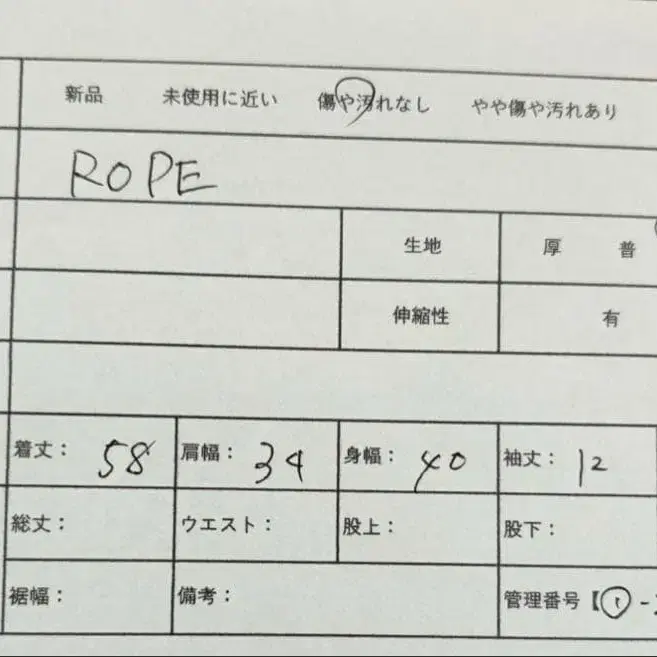 新品 未使用に近い 傷や汚れなし やや傷や汚れあり
ROPE
生地 厚 普
伸縮性 有
着丈: 58 肩幅: 34 身幅: 40 袖丈: 12
総丈: ウエスト: 股上: 股下:
裾幅: 備考: 管理番号【① -